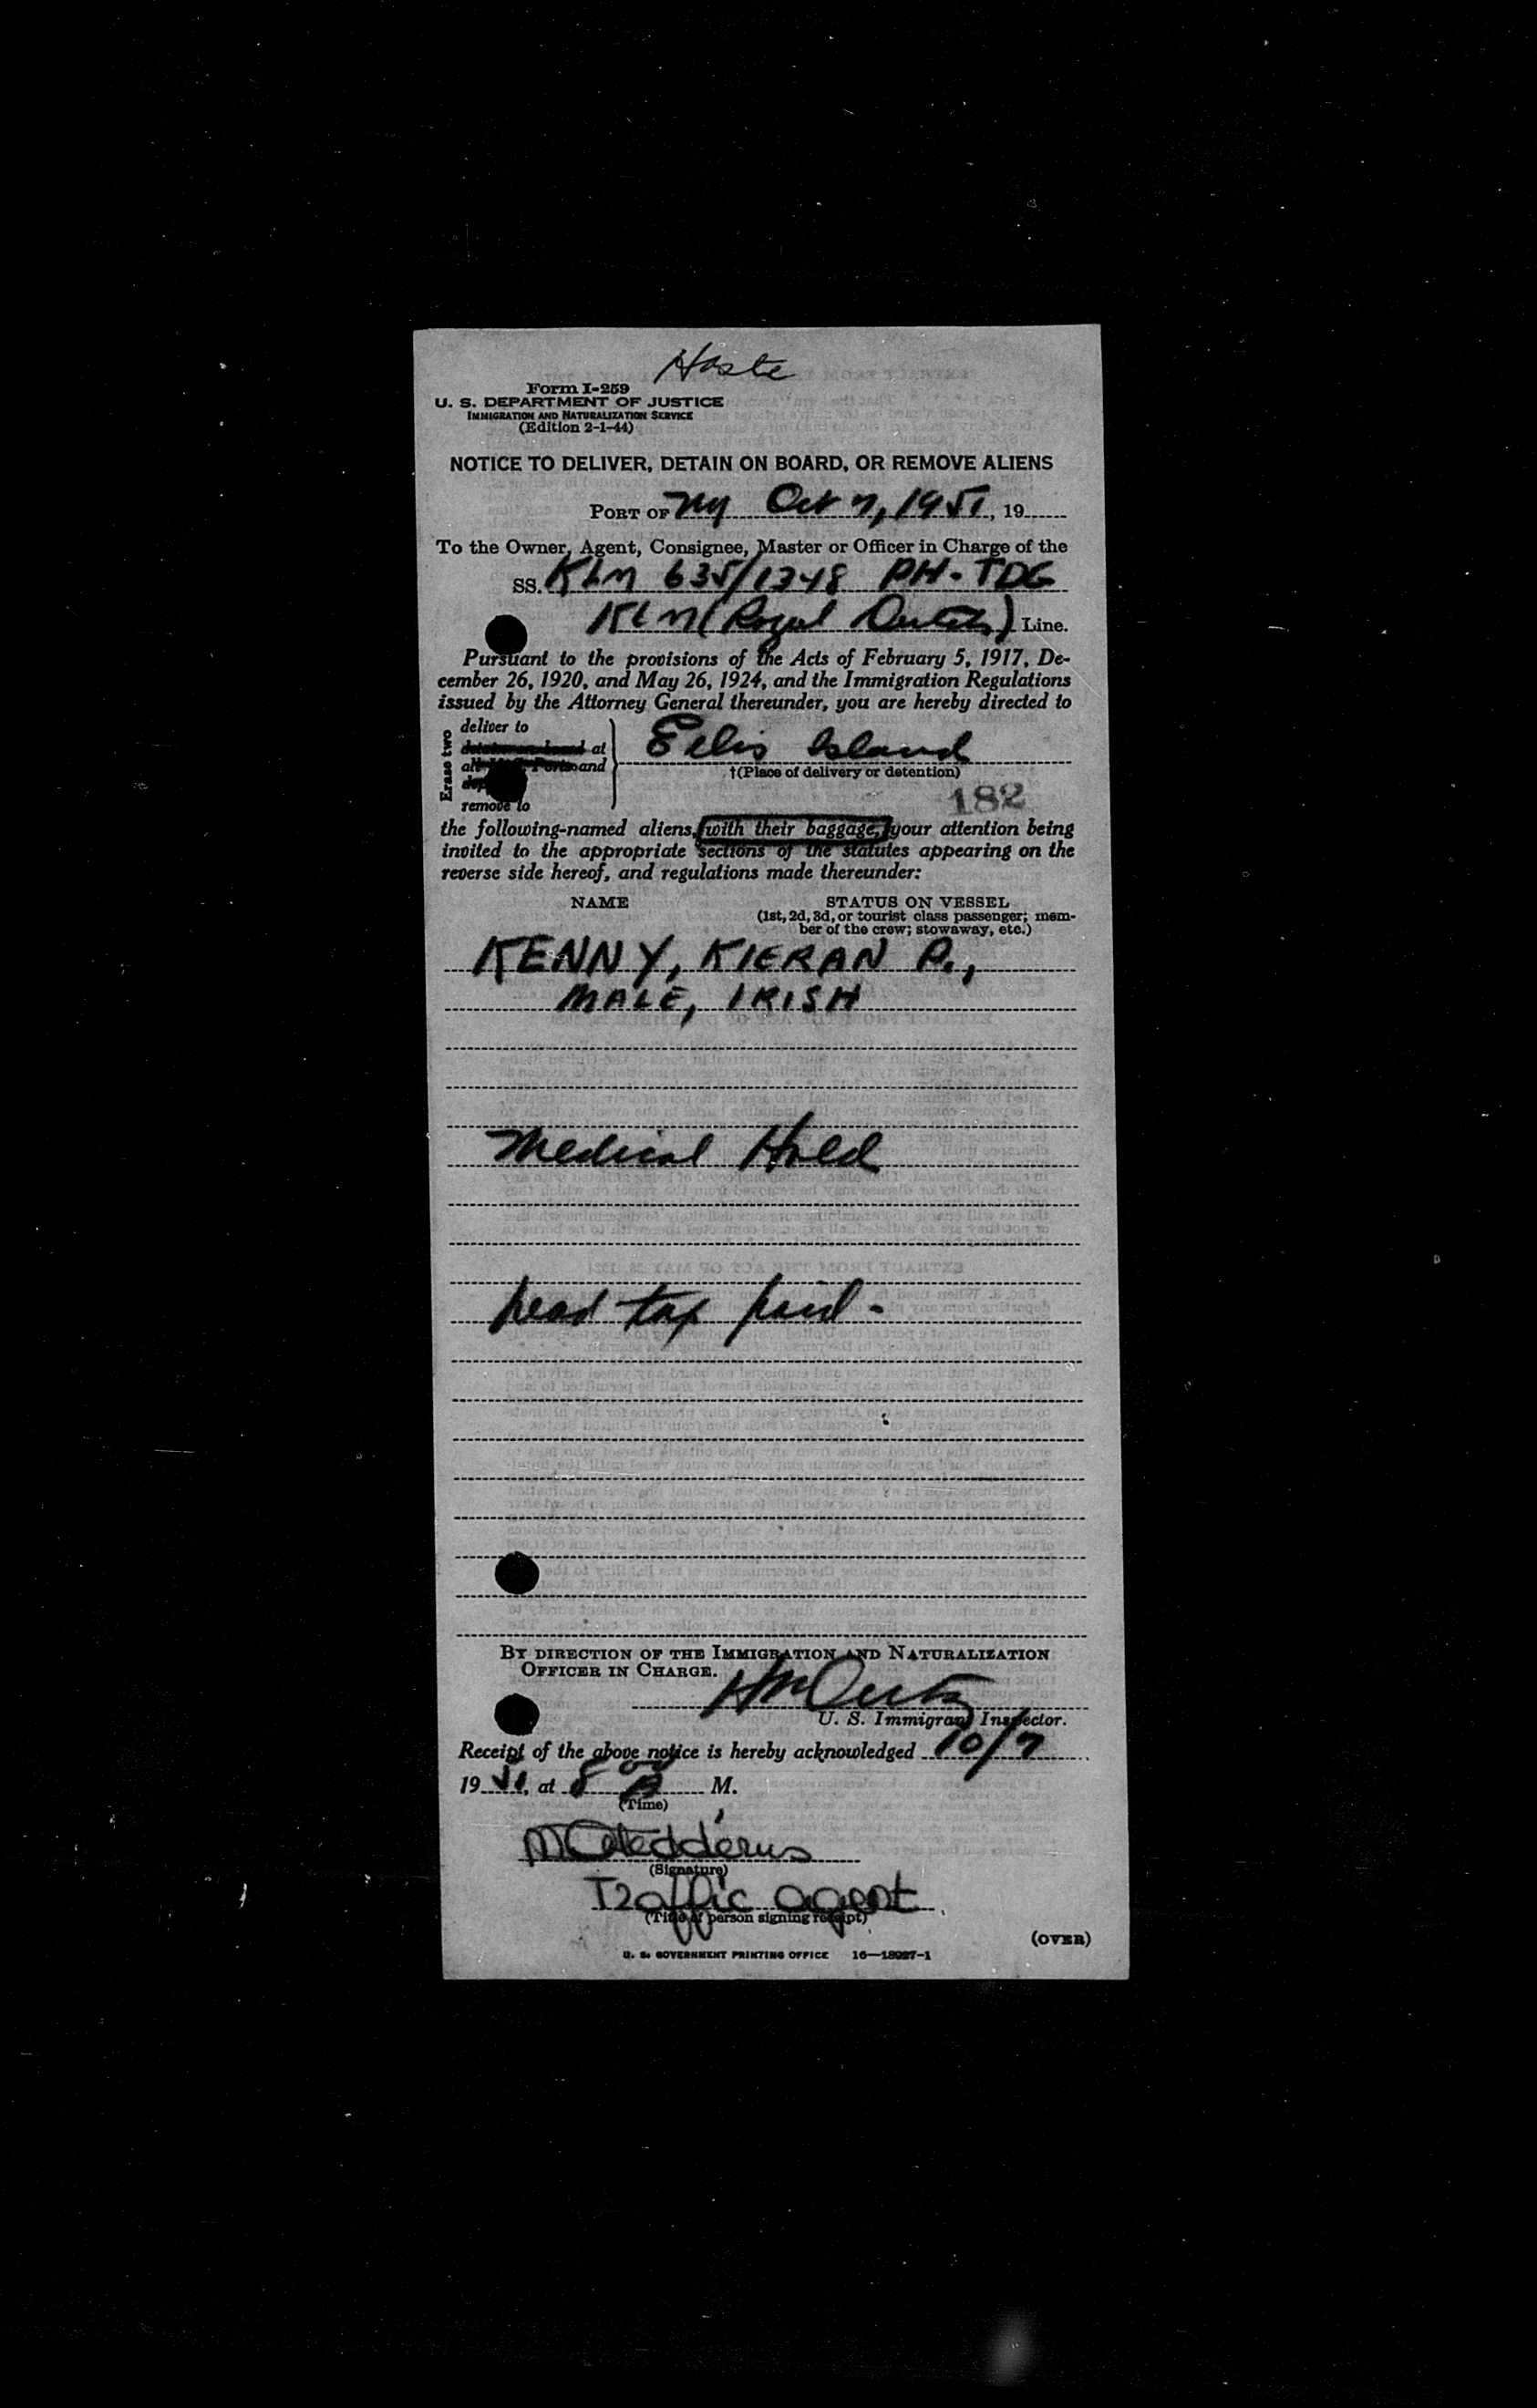 Haste
Form I-259
U. S. DEPARTMENT OF JUSTICE
IMMIGRATION AND NATURALIZATION SERVICE
(Edition 2-1-44)
NOTICE TO DELIVER, DETAIN ON BOARD, OR REMOVE ALIENS
PORT OF NY Oct 7, 1951, 19
To the Owner, Agent, Consignee, Master or Officer in Charge of the
SS. KLM 635/1348 PH-TDG
KLM (Royal Dutch) Line.
Pursuant to the provisions of the Acts of February 5, 1917, De-
cember 26, 1920, and May 26, 1924, and the Immigration Regulations
issued by the Attorney General thereunder, you are hereby directed to
Erase two
deliver to
at
and
remove to
Ellis Island
†(Place of delivery or detention)
182
the following-named aliens, with their baggage, your attention being
invited to the appropriate sections of the statutes appearing on the
reverse side hereof, and regulations made thereunder:
NAME STATUS ON VESSEL
(1st, 2d, 3d, or tourist class passenger; mem-
ber of the crew; stowaway, etc.)
KENNY, KIERAN P.,
MALE, IRISH
Medical Hold
head tax paid -
BY DIRECTION OF THE IMMIGRATION AND NATURALIZATION
OFFICER IN CHARGE.
U. S. Immigrant Inspector.
Receipt of the above notice is hereby acknowledged 10/7
19 51, at 8 00 A M.
(Time)
(Signature)
Traffic agent
(Title of person signing receipt)
(OVER)
U. S. GOVERNMENT PRINTING OFFICE 16—18027-1